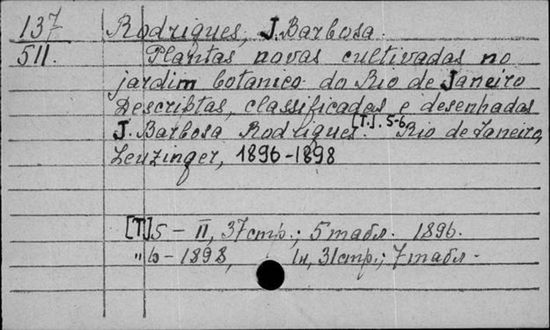 137 Rodrigues, J. Barbosa.
511. Plantas novas cultivadas no
jardim botanico do Rio de Janeiro
Descriptas, classificadas e desenhadas
J. Barbosa Rodrigues. [T.]. 5-6 Rio de Janeiro,
Leuzinger, 1896-1898
[T] 5 - II, 37 стр.; 5 табл. 1896.
" 6 - 1898, 31 стр.; 7 табл.